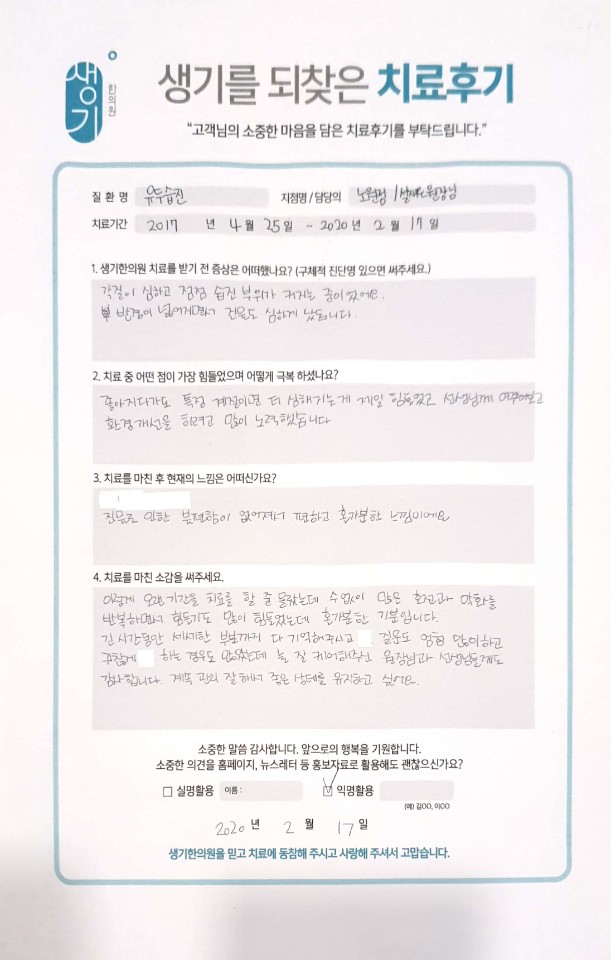 생기
한의원
생기를 되찾은 치료후기
“고객님의 소중한 마음을 담은 치료후기를 부탁드립니다.”
질 환 명 유두습진 지점명 / 담당의 노원점 / 원장님
치료기간 2017 년 4 월 25 일 ~ 2020 년 2 월 17 일
1. 생기한의원 치료를 받기 전 증상은 어떠했나요? (구체적 진단명 있으면 써주세요.)
각질이 심하고 점점 습진 부위가 커지는 중이었어요.
반경이 넓어지면서 진물도 심하게 났습니다.
2. 치료 중 어떤 점이 가장 힘들었으며 어떻게 극복 하셨나요?
좋아지다가도 특정 계절이면 더 심해지는게 제일 힘들었고 선생님께 여쭤보고
환경개선을 하려고 많이 노력했습니다
3. 치료를 마친 후 현재의 느낌은 어떠신가요?
진물로 인한 불편함이 없어져서 편하고 홀가분한 느낌이에요
4. 치료를 마친 소감을 써주세요.
이렇게 오랜기간을 치료를 할 줄 몰랐는데 수없이 많은 호전과 악화를
반복하면서 힘들기도 많이 힘들었는데 홀가분한 기분입니다.
긴 시간동안 세세한 부분까지 다 기억해주시고 질문도 엄청 많이하고
귀찮게 하는 경우도 많았는데 늘 잘 케어해주신 원장님과 선생님들께도
감사합니다. 계속 관리 잘 해서 좋은 상태를 유지하고 싶어요.
소중한 말씀 감사합니다. 앞으로의 행복을 기원합니다.
소중한 의견을 홈페이지, 뉴스레터 등 홍보자료로 활용해도 괜찮으신가요?
□ 실명활용 이름 : ☑ 익명활용
(예) 김OO, 이OO
2020 년 2 월 17 일
생기한의원을 믿고 치료에 동참해 주시고 사랑해 주셔서 고맙습니다.